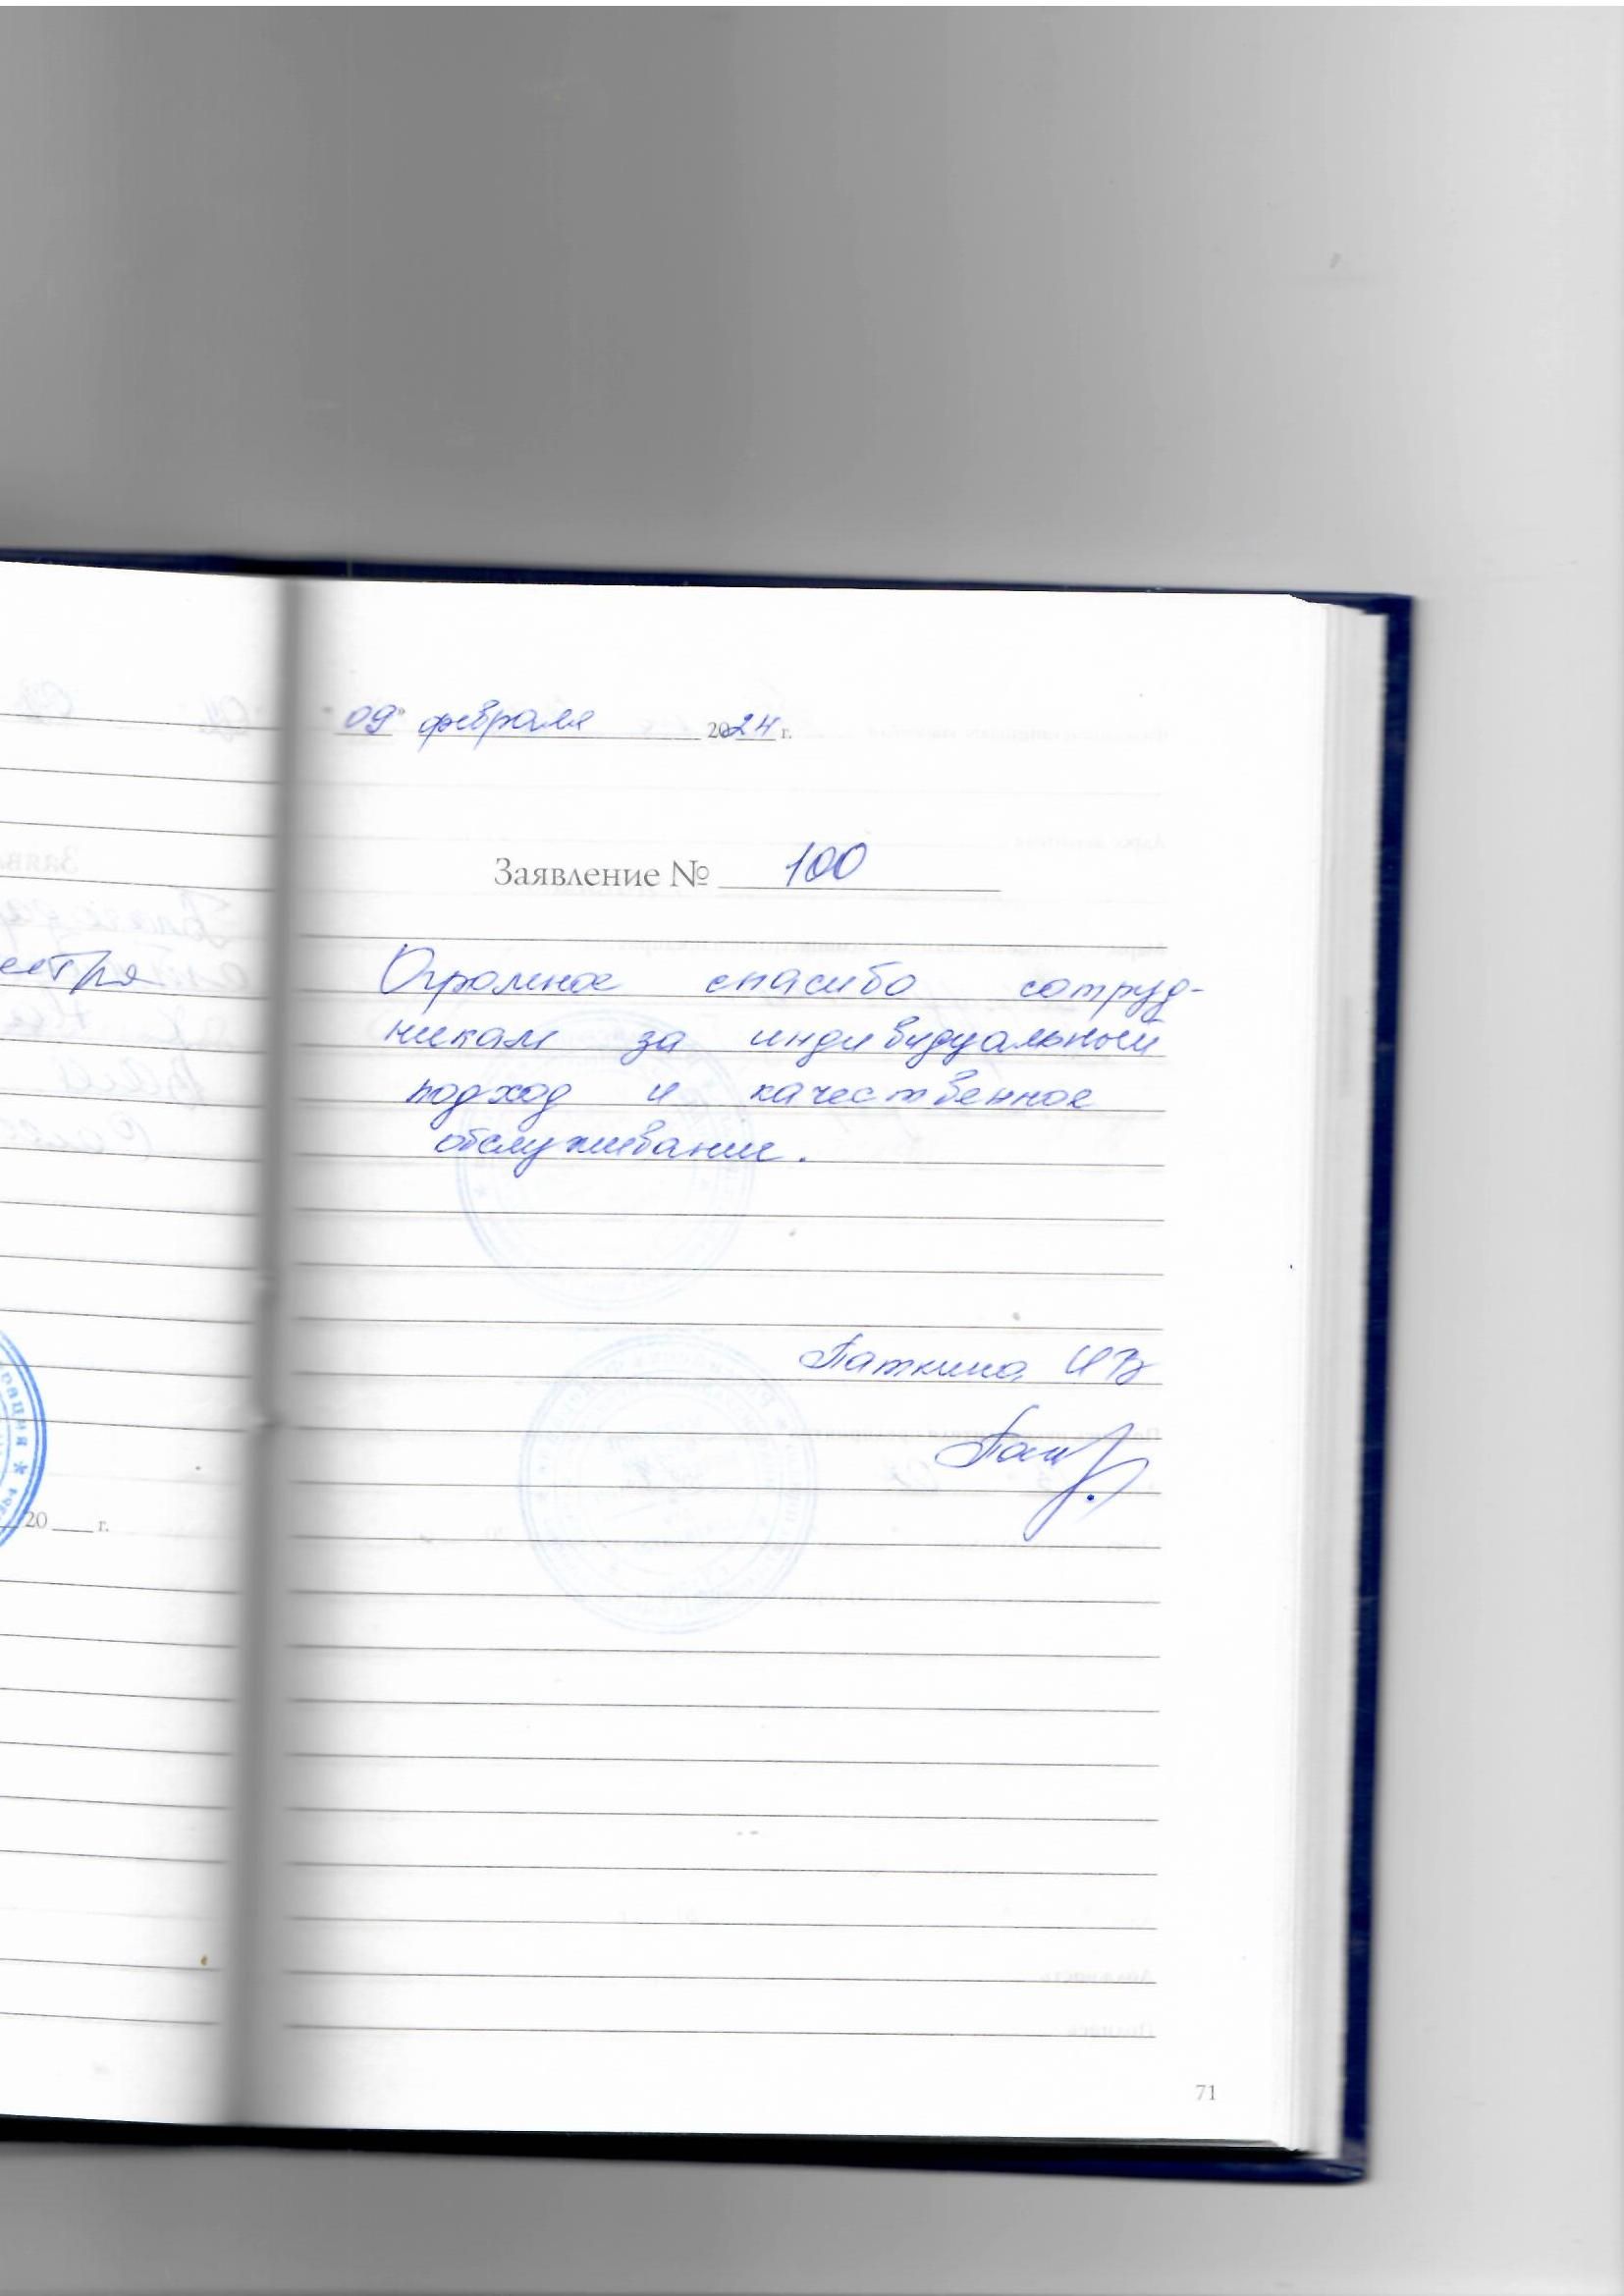 "09" февраля 2024 г.
Заявление № 100
Огромное спасибо сотруд-
никам за индивидуальный
подход и качественное
обслуживание.
Паткина ИВ
20 ___ г.
71